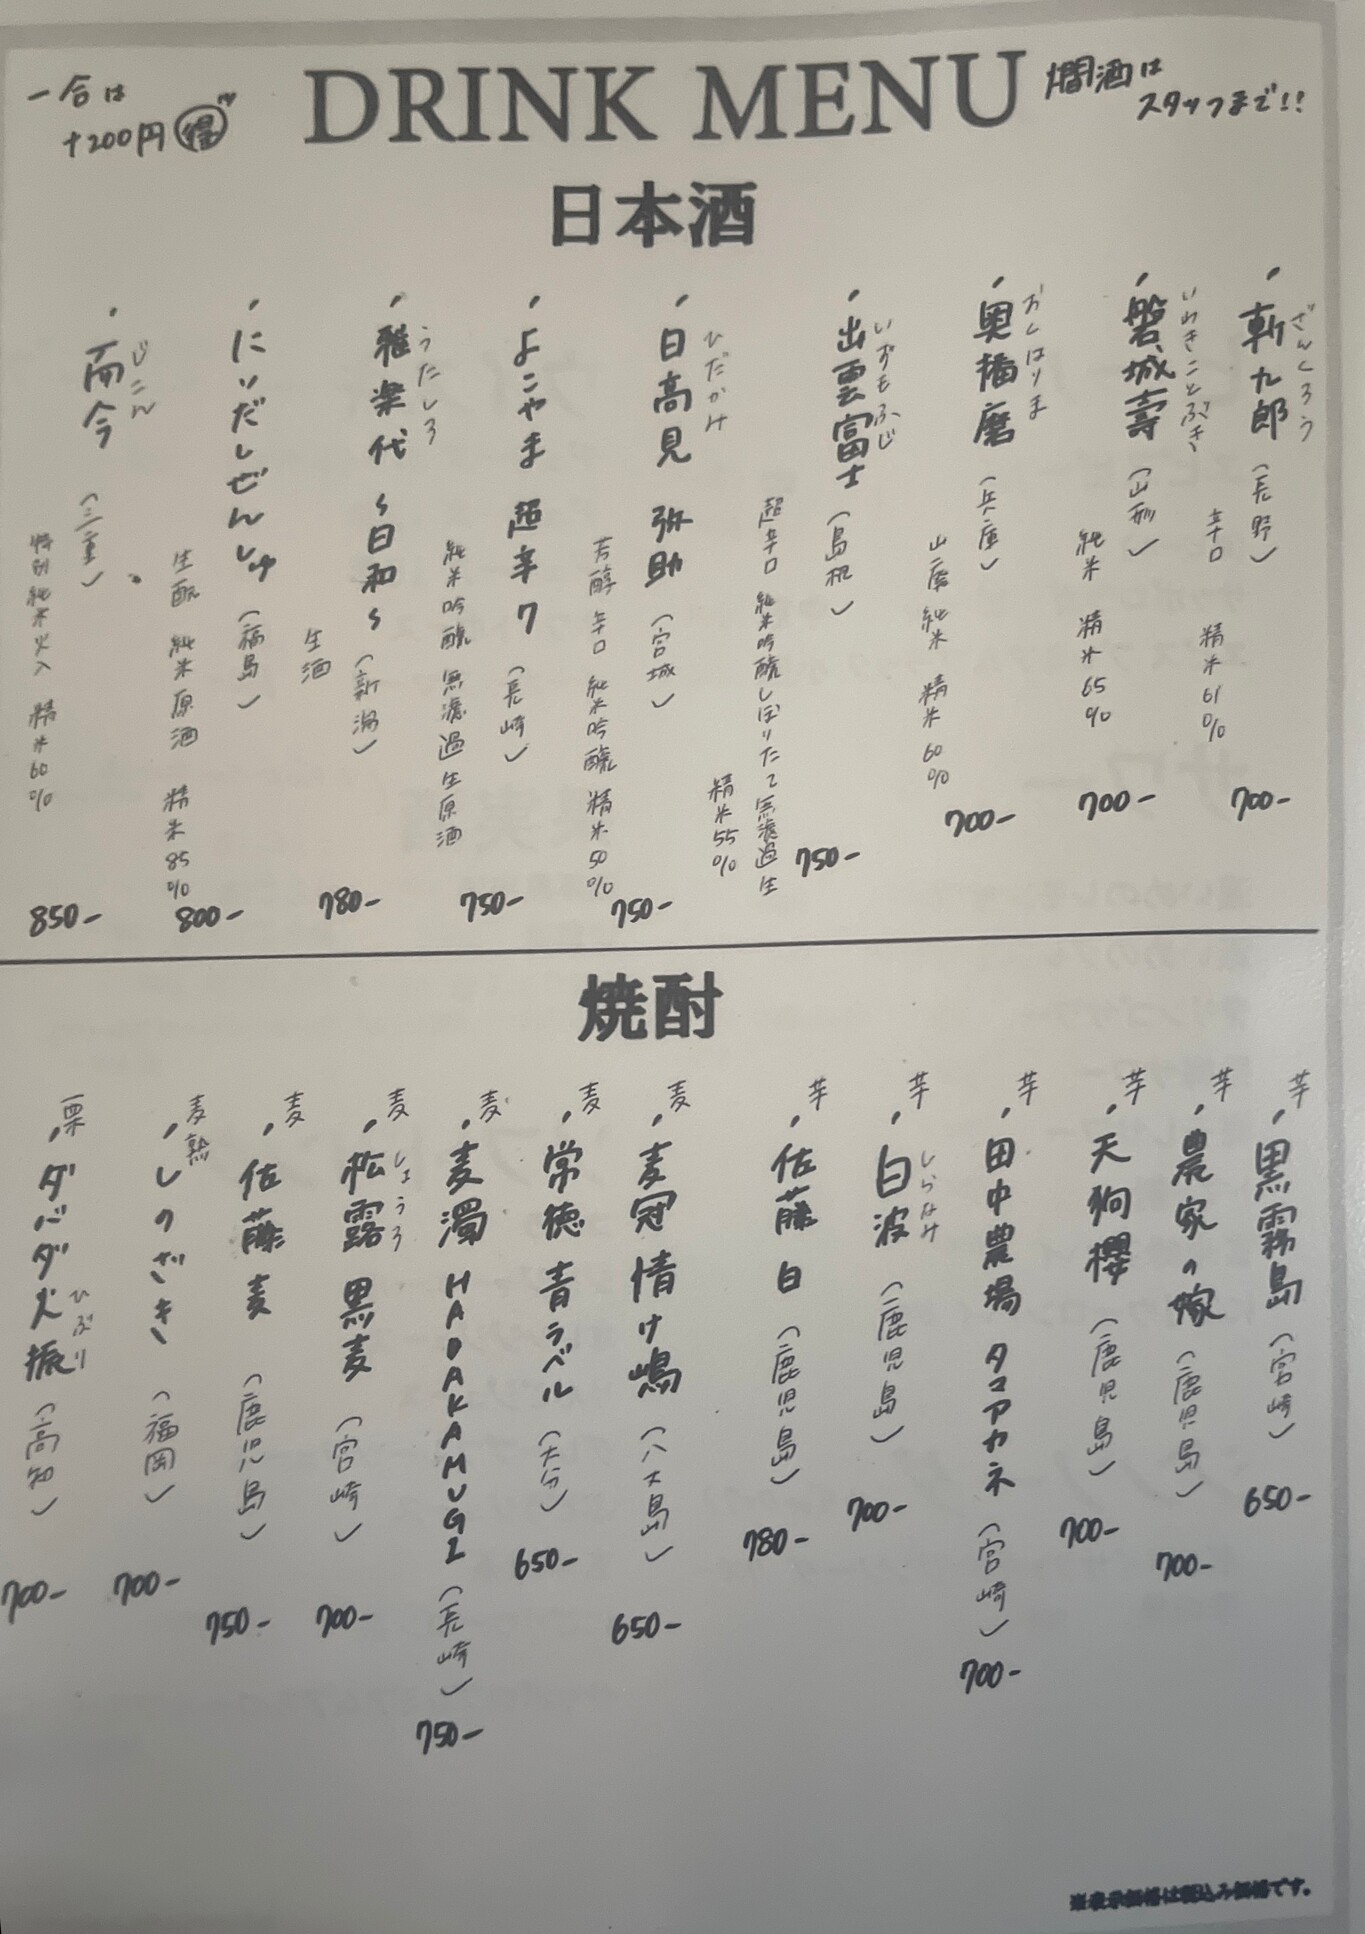 一合は
+200円 得
DRINK MENU
燗酒は
スタッフまで!!
日本酒
斬九郎 (長野)
ざんくろう
辛口 精米61%
700-
磐城壽 (山形)
いわきことぶき
純米 精米65%
700-
奥播磨 (兵庫)
おくはりま
山廃純米 精米60%
700-
出雲富士 (島根)
いずもふじ
超辛口 純米吟醸しぼりたて無濾過生
精米55%
750-
日高見 弥助 (宮城)
ひだかみ
芳醇辛口 純米吟醸 精米50%
750-
よこやま 超辛7 (長崎)
純米吟醸 無濾過生原酒
750-
雅楽代~日和~ (新潟)
うたしろ
生酒
780-
にいだしぜんしゅ (福島)
生酛 純米原酒 精米85%
800-
而今 (三重)
じこん
特別純米火入 精米60%
850-
焼酎
芋 黒霧島 (宮崎)
650-
芋 農家の嫁 (鹿児島)
700-
芋 天狗櫻 (鹿児島)
700-
芋 田中農場 タマアカネ (宮崎)
700-
芋 白波 (鹿児島)
しらなみ
700-
芋 佐藤 白 (鹿児島)
780-
麦 麦冠 情け嶋 (八丈島)
650-
麦 常徳 青ラベル (大分)
650-
麦 麦濁 HADAKAMUGI (長崎)
750-
麦 松露 黒麦 (宮崎)
しょうろ
700-
麦 佐藤 麦 (鹿児島)
750-
麦熟 しのざき (福岡)
700-
栗 ダバダ火振 (高知)
ひぶり
700-
※表示価格は税込み価格です。